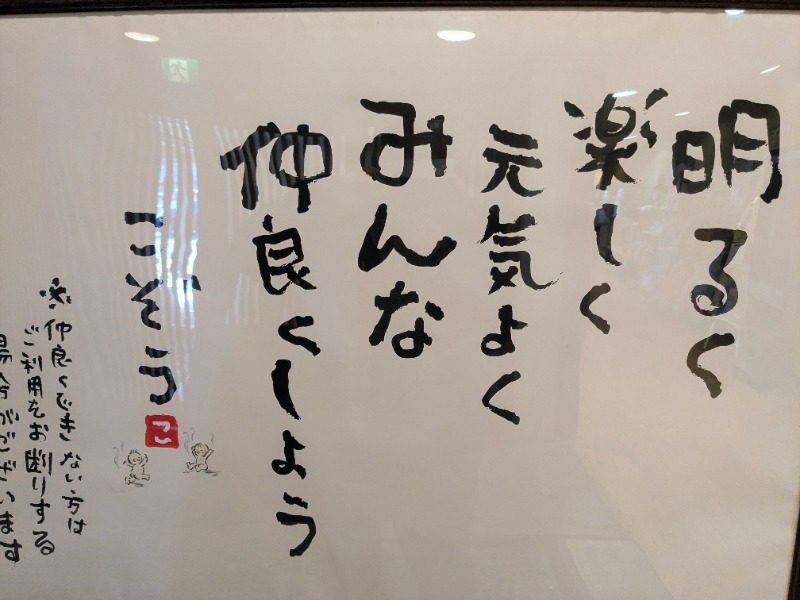 明るく
楽しく
元気よく
みんな
仲良くしよう
こぞう
こ
※仲良くできない方は
ご利用をお断りする
場合がございます